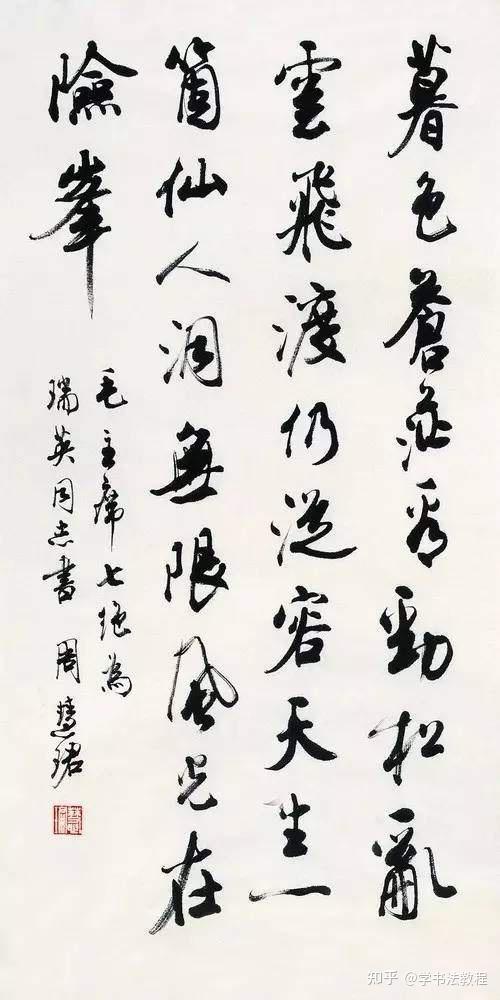 暮色蒼茫看勁松亂
雲飛渡仍從容天生一
箇仙人洞無限風光在
險峯
毛主席七絕為
瑞英同志書 周慧珺
知乎 @学书法教程